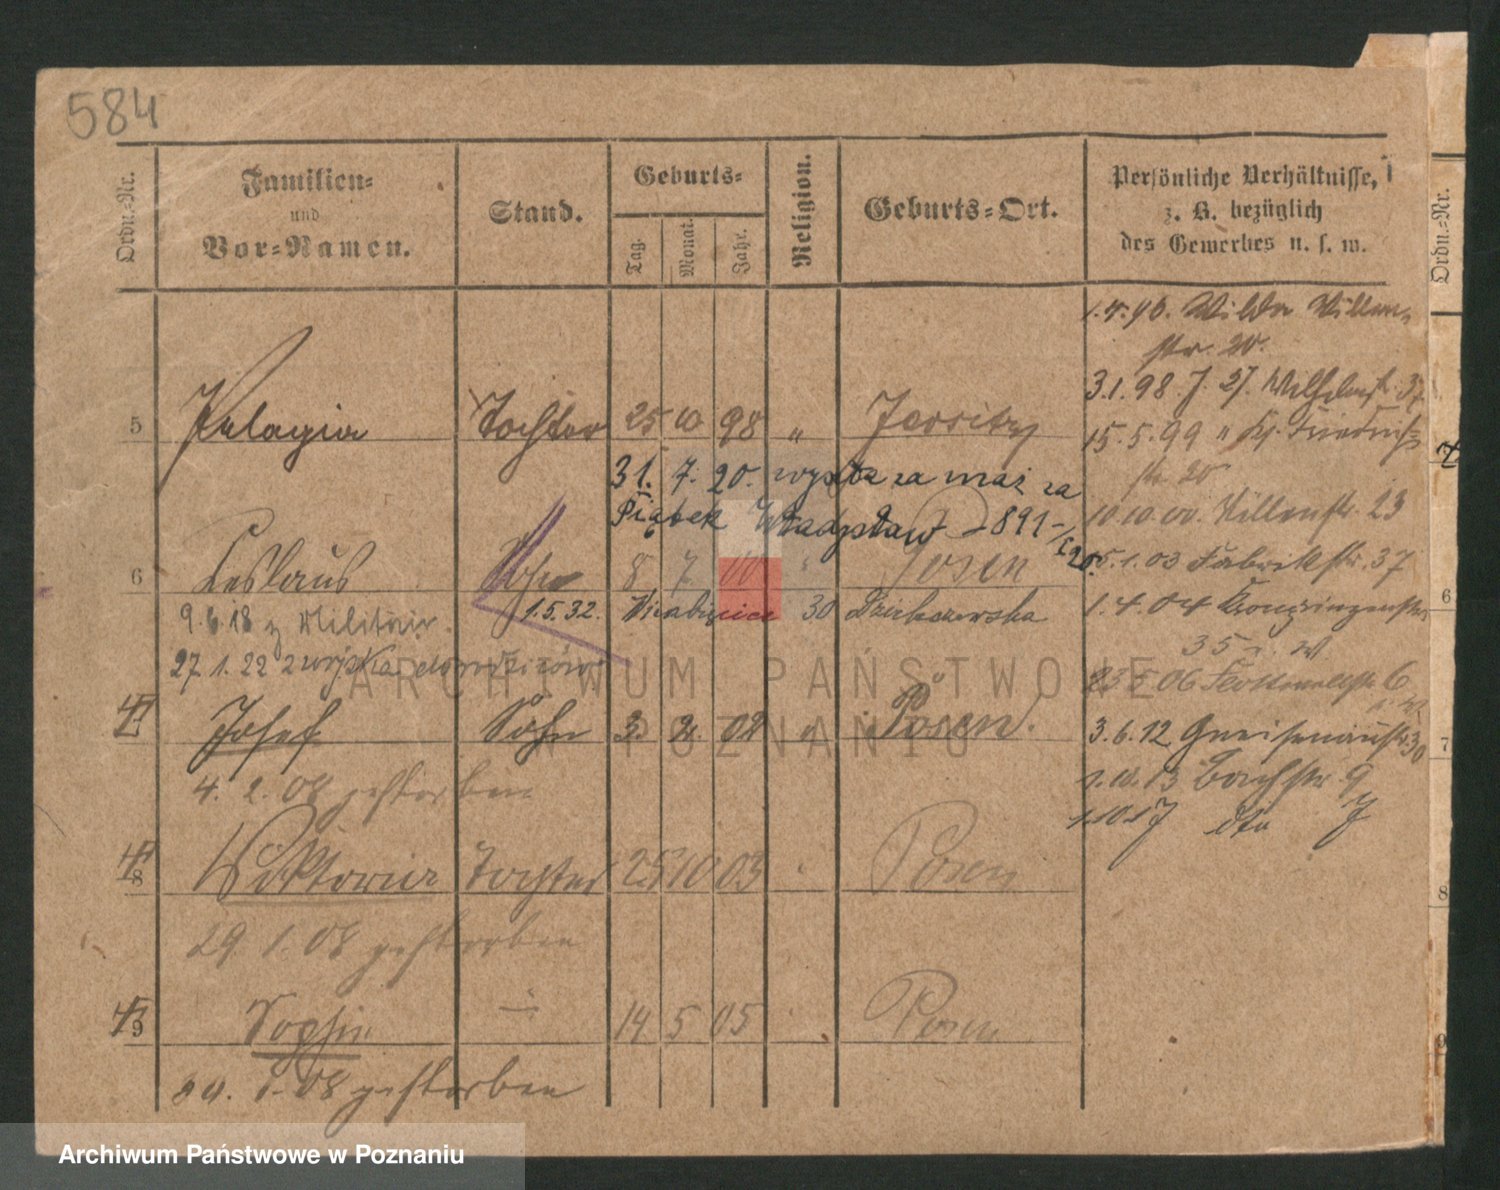 584
Ordn.-Nr.
Familien-
und
Vor-Namen.
Stand.
Geburts-
Tag.
Monat.
Jahr.
Religion.
Geburts-Ort.
Persönliche Verhältnisse,
z. B. bezüglich
des Gewerbes u. s. w.
Ordn.-Nr.
1.4.96. Wilda Villen-
str. 20.
3.1.98 J. 27.
5 Pelagia Tochter 25 10 98 " Jersitz
15.5.99 "
str. 20
31. 7. 20. wyszła za mąż za
Piątek Władysław 891
10.10.00. Villenstr. 23
6 Leslaus Sohn 8 7 00 " Posen
5.1.03 Fabrikstr. 37
9.6.18 z Militair 1.5.32. 30 Dzierżawska
1.4.04 Kronprinzenstr.
35
27.1.22 z wojska
23.5.06 6
Josef Sohn 3. 2. 02 " Posen.
3.6.12 Gneisenaustr. 30
4. 2. 08 gestorben
1.10.13 Bachstr 9
1.10.17 dto 7
8 Wiktoria Tochter 25 10 03 Posen
29. 1. 08 gestorben
9 Sophie 14 5 05 Posen
1. 08 gestorben
6
7
8
9
ARCHIWUM PAŃSTWOWE
W POZNANIU
Archiwum Państwowe w Poznaniu